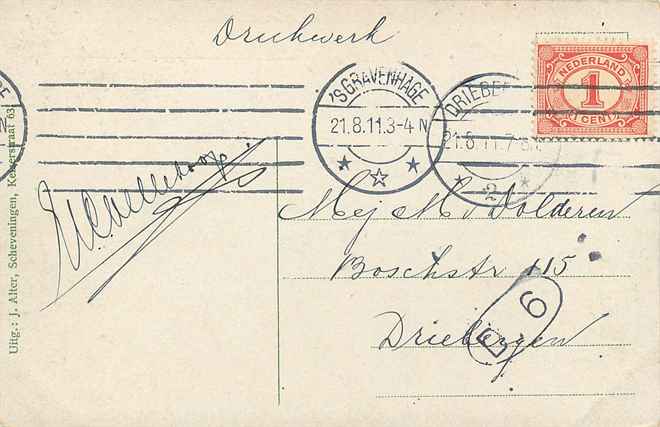 Drukwerk
NEDERLAND
1
1 CENT
'S GRAVENHAGE
21.8.11.3-4 N
DRIEBE
21.8.11.7-8
2
Mej M. v Wolderen
Boschstr 115
Driebergen
B 6
Uitg.: J. Alter, Scheveningen, Keizerstraat 63.